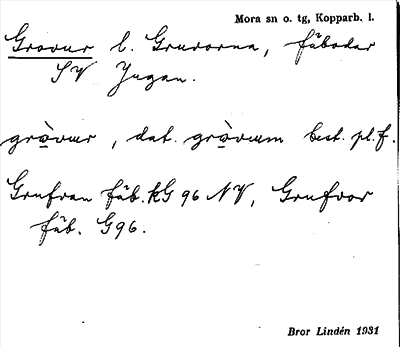 Mora sn o. tg, Kopparb. l.
Grovur l. Gruvorna, fäbodar
SV Jugan.
grò̱vur, dat. grò̱vum best. pl. f.
Grufvan fäb. KG 96 NV, Grufvor
fäb. G96.
Bror Lindén 1931